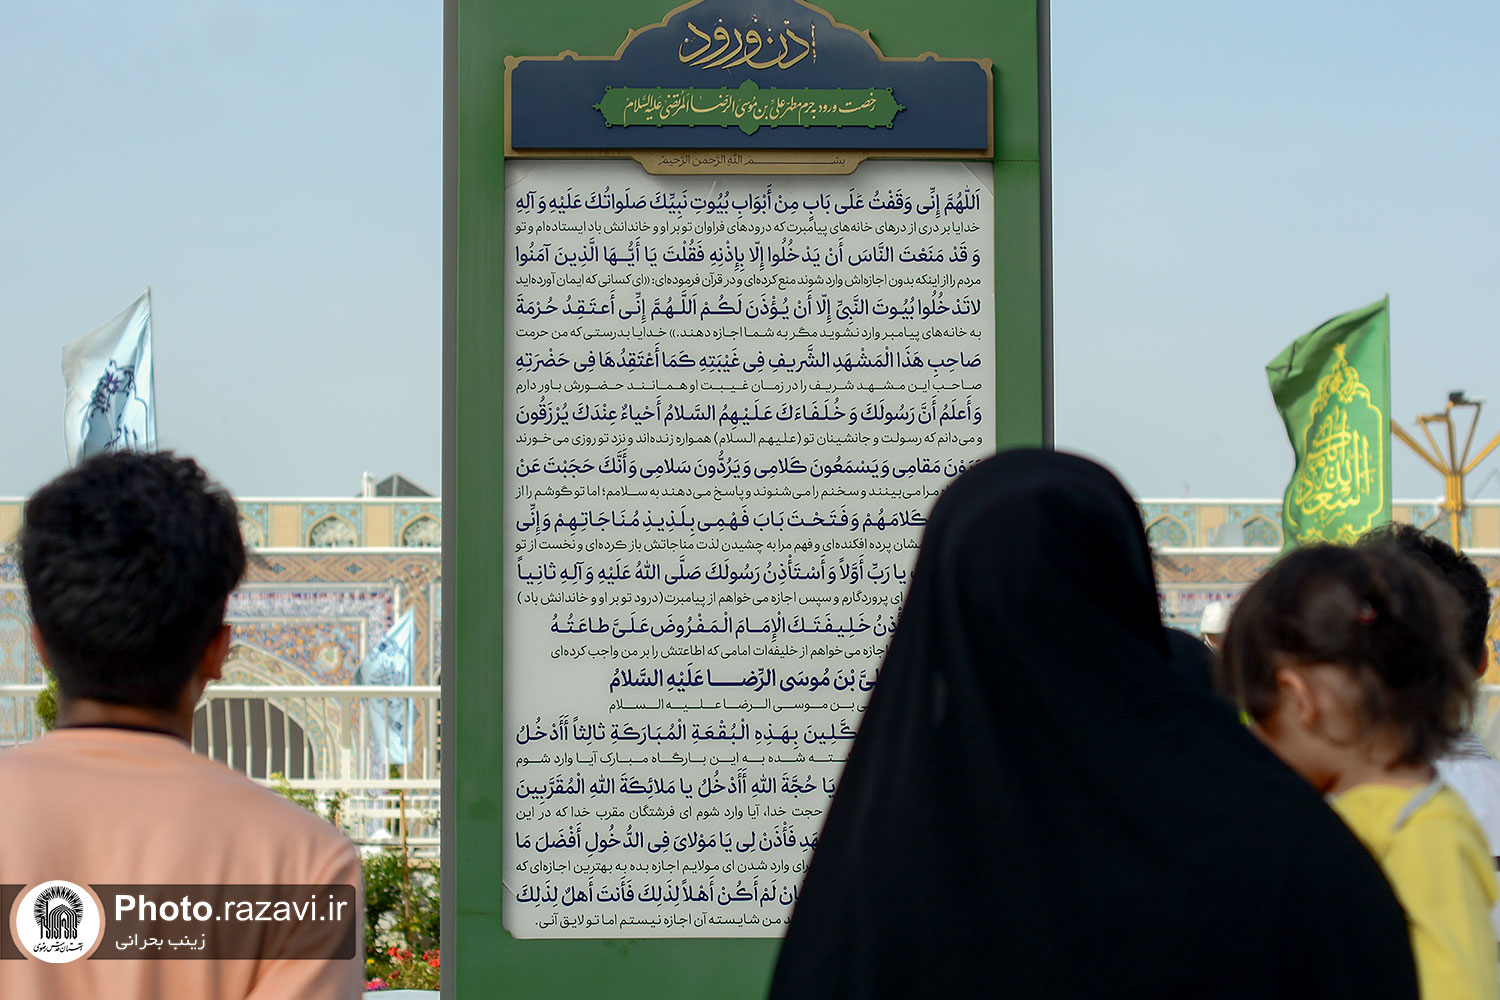 اذن ورود
رخصت ورود به حرم مطهر علی بن موسی الرضا المرتضی علیه السلام
بسم الله الرحمن الرحیم
اَللّهُمَّ إِنِّی وَقَفْتُ عَلَی بَابٍ مِنْ أَبْوَابِ بُیُوتِ نَبِیِّکَ صَلَواتُکَ عَلَیْهِ وَ آلِهِ
خدایا بر دری از درهای خانه‌های پیامبرت که درودهای فراوان تو بر او و خاندانش باد ایستاده‌ام و تو
وَ قَدْ مَنَعْتَ النَّاسَ أَنْ یَدْخُلُوا إِلّا بِإِذْنِهِ فَقُلْتَ یَا أَیُّهَا الَّذِینَ آمَنُوا
مردم را از اینکه بدون اجازه‌اش وارد شوند منع کرده‌ای و در قرآن فرموده‌ای: «ای کسانی که ایمان آورده‌اید
لاتَدْخُلُوا بُیُوتَ النَّبِیِّ إِلّا أَنْ یُؤْذَنَ لَکُمْ اَللّهُمَّ إِنِّی أَعتَقِدُ حُرْمَةَ
به خانه‌های پیامبر وارد نشوید مگر به شما اجازه دهند.» خدایا بدرستی که من حرمت
صَاحِبِ هَذَا الْمَشْهَدِ الشَّرِیفِ فِی غَیْبَتِهِ کَمَا أَعْتَقِدُهَا فِی حَضْرَتِهِ
صاحب این مشهد شریف را در زمان غیبت او همانند حضورش باور دارم
وَأَعلَمُ أَنَّ رَسُولَکَ وَ خُلَفَاءَکَ عَلَیْهِمُ السَّلامُ أَحْیاءٌ عِنْدَکَ یُرْزَقُونَ
و می‌دانم که رسولت و جانشینان تو (علیهم السلام) همواره زنده‌اند و نزد تو روزی می‌خورند
یَرَوْنَ مَقامِی وَ یَسْمَعُونَ کَلامِی وَ یَرُدُّونَ سَلامِی وَ أَنَّکَ حَجَبْتَ عَنْ
مرا می‌بینند و سخنم را می‌شنوند و پاسخ می‌دهند به سلامم؛ اما تو گوشم را از
کَلامَهُمْ وَ فَتَحْتَ بَابَ فَهْمِی بِلَذِیذِ مُنَاجَاتِهِمْ وَ إِنِّی
پرده افکنده‌ای و فهم مرا به چشیدن لذت مناجاتش باز کرده‌ای و نخست از تو
یا رَبِّ أَوَّلاً وَ أَسْتَأْذِنُ رَسُولَکَ صَلَّی اللهُ عَلَیْهِ وَ آلِهِ ثانِیاً
ای پروردگارم و سپس اجازه می‌خواهم از پیامبرت (درود تو بر او و خاندانش باد )
خَلِیفَتَکَ الْإِمَامَ الْمَفْرُوضَ عَلَیَّ طاعَتُهُ
اجازه می‌خواهم از خلیفه‌ات امامی که اطاعتش را بر من واجب کرده‌ای
بْنَ مُوسَی الرِّضا عَلَیْهِ السَّلامُ
بن موسی الرضا علیه السلام
بِهَذِهِ الْبُقْعَةِ الْمُبَارَکَةِ ثالِثاً أَأَدْخُلُ
شده به این بارگاه مبارک آیا وارد شوم
یَا حُجَّةَ اللهِ أَأَدْخُلُ یا مَلائِکَةَ اللهِ الْمُقَرَّبِینَ
حجت خدا، آیا وارد شوم ای فرشتگان مقرب خدا که در این
فَأْذَنْ لِی یَا مَوْلایَ فِی الدُّخُولِ أَفْضَلَ مَا
وارد شدن ای مولایم اجازه بده به بهترین اجازه‌ای که
لَمْ أَکُنْ أَهْلاً لِذَلِکَ فَأَنتَ أَهلٌ لِذَلِکَ
من شایسته آن اجازه نیستم اما تو لایق آنی.
السلام علیک یا اباعبدالله
Photo.razavi.ir
زینب بحرانی
آستان قدس رضوی